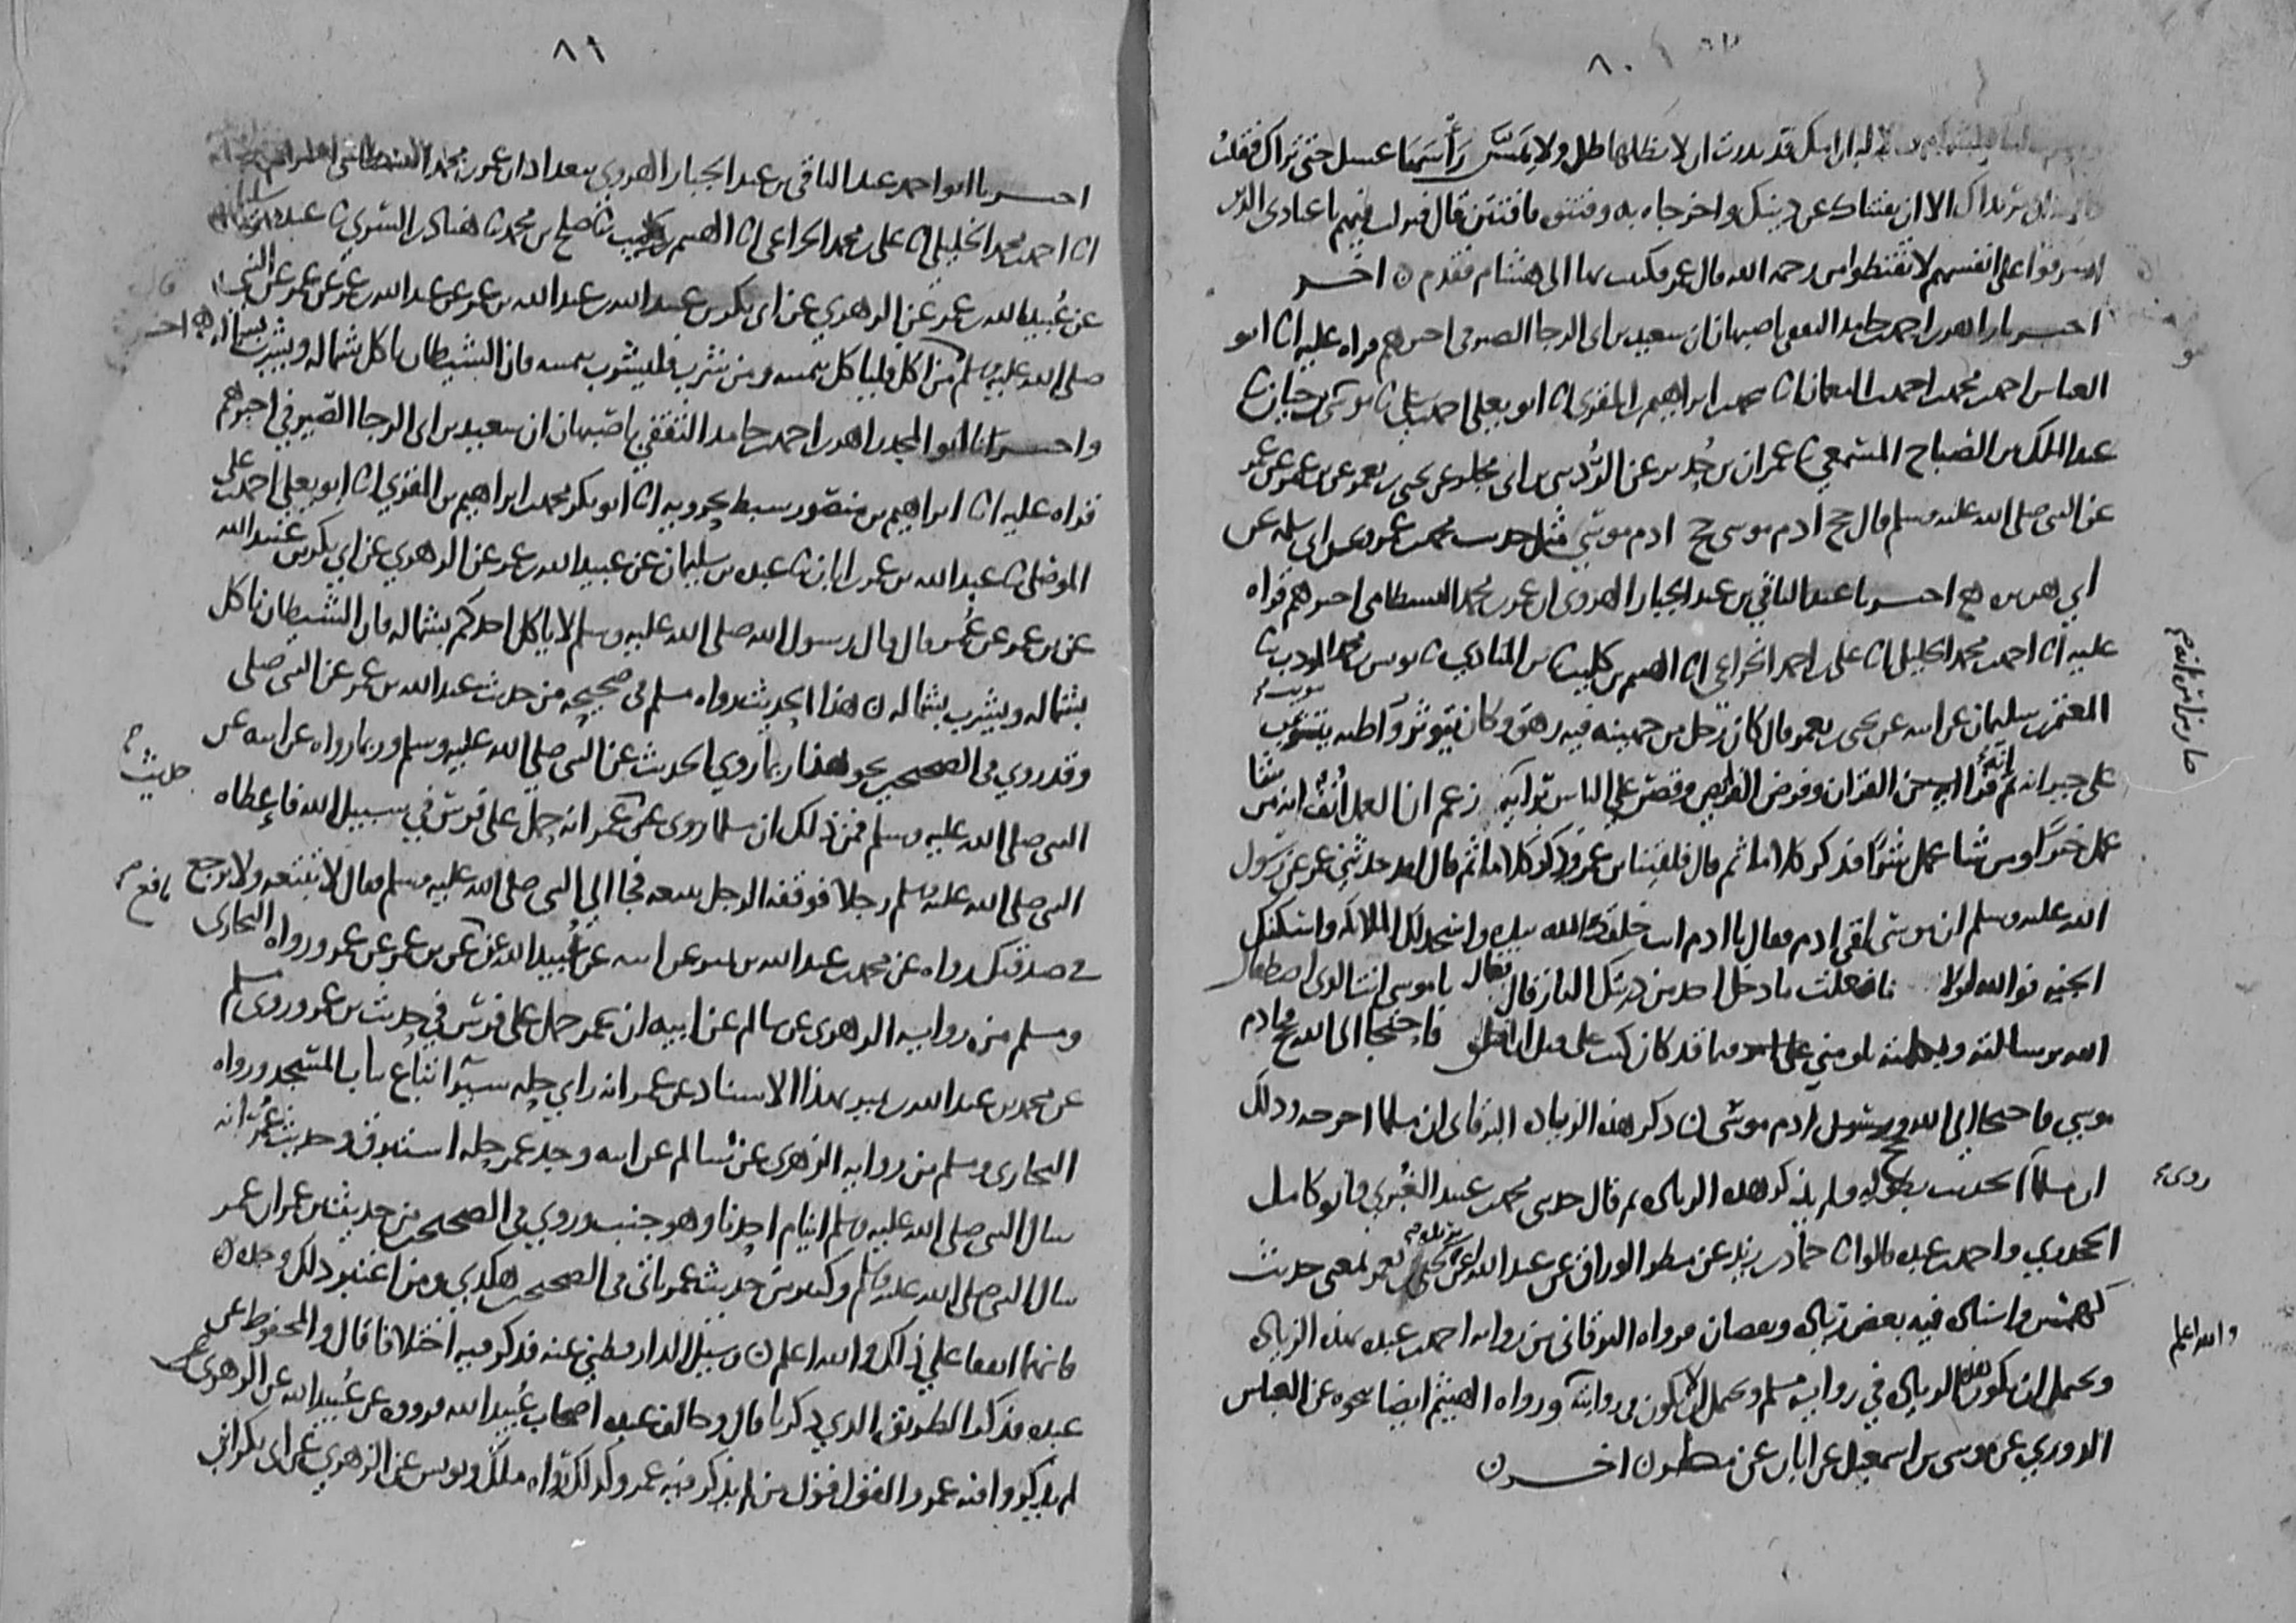 ٨٠
قد نذرت ان لا يظلها ظل ولا يمس رأسها غسل حتى تراك فقلت
الا ان يفتناك عن دينك واخرجاه به وفتنوه فافتتن قال فنزلت فيهم يا عبادي الذين
اسرفوا على انفسهم لا تقنطوا من رحمة الله قال عمر فكتبت بها الى هشام فقدم ن اخر
احمد بن حامد الثقفي باصبهان ان سعيد بن ابي الرجا الصيرفي اخبرهم قراه عليه انا ابو
العباس احمد بن محمد بن احمد بن النعمان انا محمد بن ابراهيم بن المقرئ انا ابو يعلى احمد بن علي نا موسى بن حيان نا
عبد الملك بن الصباح المسمعي نا عمران بن حدير عن الرديني بن ابي مجلز عن يحيى بن يعمر عن بن عمر عن عمر
عن النبي صلى الله عليه وسلم قال حج ادم موسى حج ادم موسى مثل حديث محمد بن عمرو عن ابي سلمه عن
ابي هريره اخبرنا عبد الباقي بن عبد الجبار الهروي ان عمر بن محمد البسطامي اخبرهم قراه
عليه انا احمد بن محمد الخليلي انا علي بن احمد الخزاعي انا الهيثم بن كليب نا بن المنادي نا يونس بن محمد المودب نا
المعتمر بن سليمان عن ابيه عن يحيى بن يعمر قال كان رجل من جهينه فيه رهق وكان يتوثب
على جيرانه ثم انه قرا القران وفرض الفرائض وقص على الناس زعم ان العمل انف من شا
عمل خيرا ومن شا عمل شرا فذكر كلاما ثم قال فلقينا بن عمر وذكر كلاما ثم قال لقد حدثني عمر عن رسول
الله عليه وسلم ان موسى لقي ادم فقال يا ادم انت خلقك الله بيده واسجد لك الملائكه واسكنك
الجنه فوالله لولا ما فعلت ما دخل احد من ذريتك النار قال فقال يا موسى انت الذي اصطفاك
الله برسالته تلومني على ما قد كان كتب علي قبل ان اخلق فاحتجا الى الله فحج ادم
موسى فاحتجا الى الله ادم موسى ن ذكر هذه الزياده البرقاني ان مسلما اخرجه وذلك
ان مسلما الحديث بطوله ولم يذكر هذه الزياده ثم قال حدثني محمد بن عبيد الغبري وابو كامل
الجحدري واحمد بن عبده قالوا نا حماد بن زيد عن مطر الوراق عن عبد الله بن بريده عن يحيى بن يعمر بمعنى حديث
كهمس واسناده فيه بعض زياده ونقصان فرواه البرقاني من روايه احمد بن عبده بهذه الزياده
ويحتمل ان يكون هذه الزياده في روايه مسلم ويحتمل ان لا يكون في روايته ورواه الهيثم ايضا بنحوه عن العباس
الدوري عن موسى بن اسمعيل عن ابان عن مطر ن اخر ن
روى
والله اعلم
٨١
اخبرنا ابو احمد عبد الباقي بن عبد الجبار الهروي ببغداد ان عمر بن محمد البسطامي اخبرهم
انا احمد بن محمد الخليلي انا علي بن محمد الخزاعي انا الهيثم بن كليب نا صلح بن محمد نا هناد بن السري نا عبده بن سليمان
عن عبيد الله بن عمر عن الزهري عن ابي بكر بن عبيد الله بن عبد الله بن عمر عن عبد الله بن عمر عن عمر عن النبي
صلى الله عليه وسلم من اكل فلياكل بيمينه ومن شرب فليشرب بيمينه فان الشيطان ياكل بشماله ويشرب بشماله
واخبرنا ابو المجد زاهر بن احمد بن حامد الثقفي باصبهان ان سعيد بن ابي الرجا الصيرفي اخبرهم
قراه عليه انا ابراهيم بن منصور سبط بحرويه انا ابو بكر محمد بن ابراهيم بن المقرئ انا ابو يعلى احمد بن علي
الموصلي نا عبد الله بن عمر بن ابان نا عبده بن سليمان عن عبيد الله بن عمر عن الزهري عن ابي بكر بن عبيد الله
عن بن عمر عن عمر قال قال رسول الله صلى الله عليه وسلم لا ياكل احدكم بشماله فان الشيطان ياكل
بشماله ويشرب بشماله ن هذا الحديث رواه مسلم في صحيحه من حديث عبد الله بن عمر عن النبي صلى
وقد روي في الصحيحين نحو هذا ربما روي الحديث عن النبي صلى الله عليه وسلم وربما رواه عن ابيه عن
النبي صلى الله عليه وسلم فمن ذلك ان مسلما روى عن عمر انه حمل على فرس في سبيل الله فاعطاه
النبي صلى الله عليه وسلم رجلا فوقفه الرجل يبيعه فجا الى النبي صلى الله عليه وسلم فقال لا تبتعه ولا ترجع
في صدقتك رواه عن محمد بن عبد الله بن نمير عن ابيه عن عبيد الله عن نافع عن بن عمر عن عمر ورواه البخاري
ومسلم من روايه الزهري عن سالم عن ابيه ان عمر حمل على فرس في حديث بن عمر وروى مسلم
عن محمد بن عبد الله بن نمير بهذا الاسناد عن عمر انه راي حله سيرا تباع بباب المسجد ورواه
البخاري ومسلم من روايه الزهري عن سالم عن ابيه وجد عمر حله استبرق وحديث عمر انه
سال النبي صلى الله عليه وسلم اينام احدنا وهو جنب وروي في الصحيحين من حديث بن عمر ان عمر
سال النبي صلى الله عليه وسلم وكثير من حديث عمر ياتي في الصحيحين هكذي ومن اعتبر ذلك وجده ن
فانهما اتفقا على ذلك والله اعلم ن وسئل الدارقطني عنه فذكر فيه اختلافا قال والمحفوظ عن
عبده فذكر الطريق الذي ذكرنا قال وخالف عبده اصحاب عبيد الله فرووه عن عبيد الله عن الزهري
لم يذكروا فيه عمر والقول قول من لم يذكر فيه عمر وكذلك رواه ملك ويونس عن الزهري عن ابي بكر
حديث
نافع